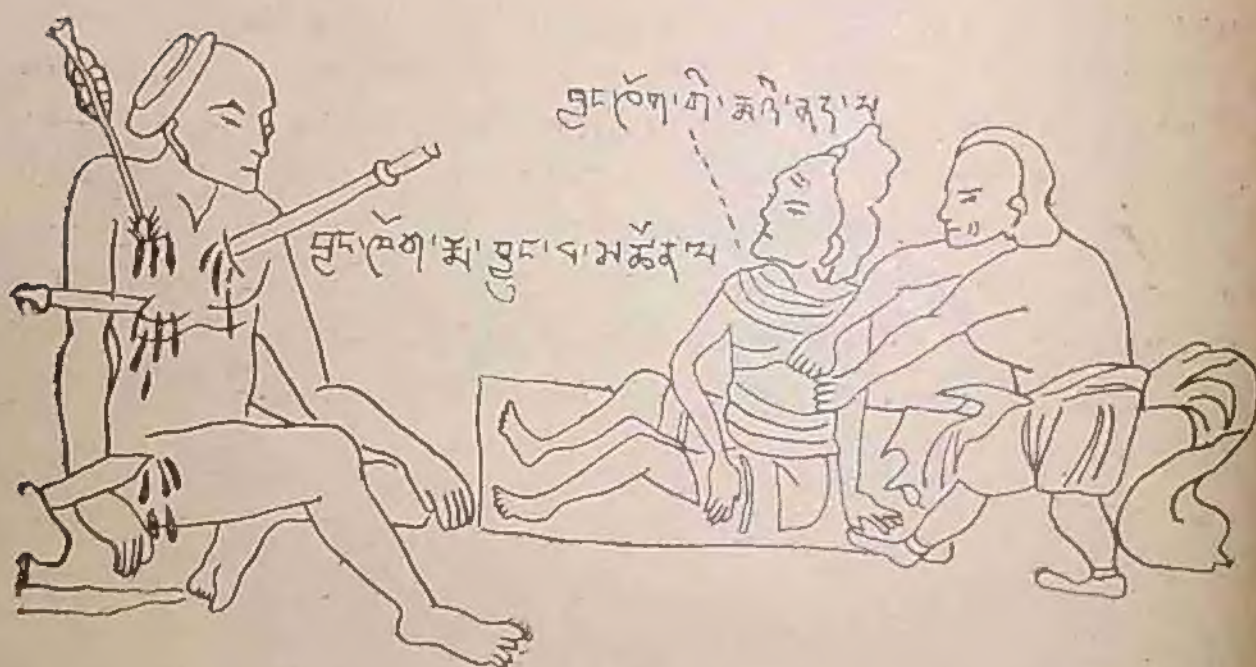 བྱང་ཁོག་གི་རྨའི་ནད་པ
བྱང་ཁོག་རྨ་བྱུང་བ་མཚོན་པ